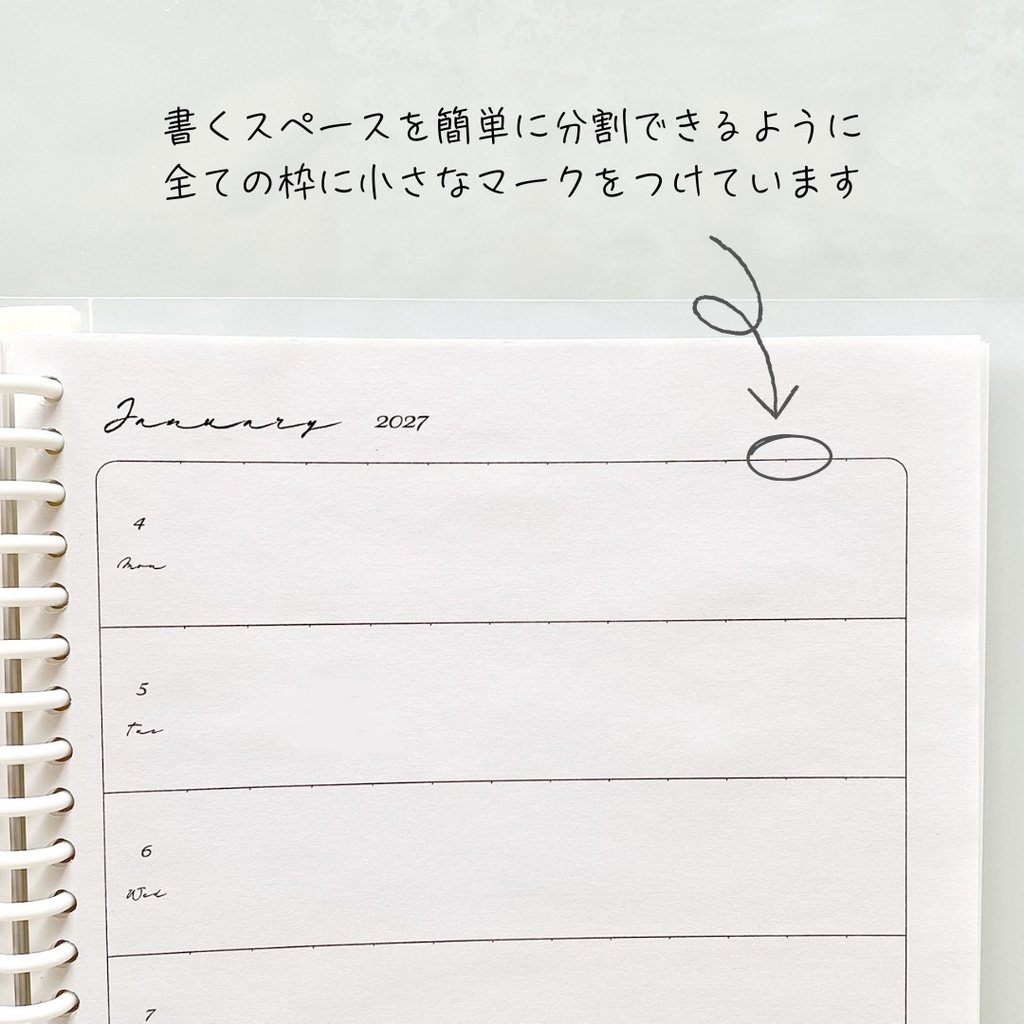 書くスペースを簡単に分割できるように
全ての枠に小さなマークをつけています
January 2027
4
Mon
5
Tue
6
Wed
7